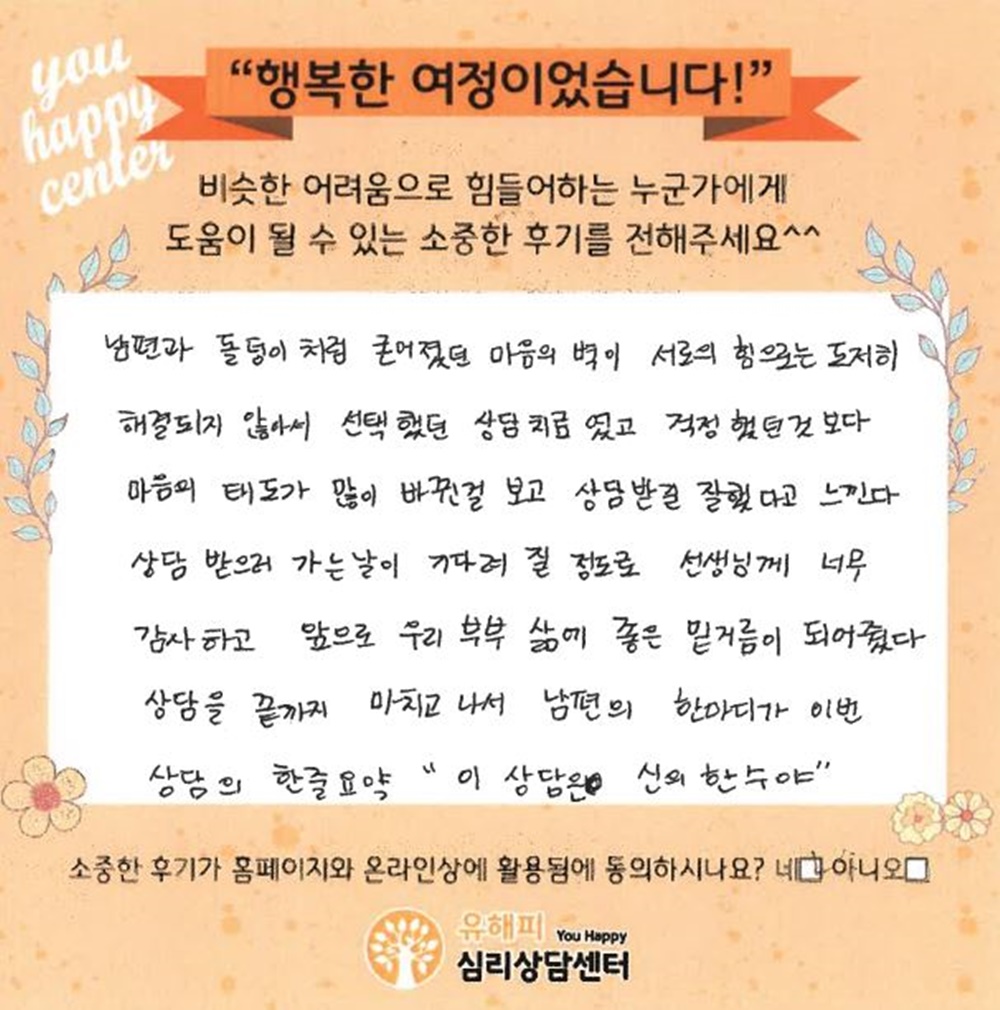 you
happy
center
“행복한 여정이었습니다!”
비슷한 어려움으로 힘들어하는 누군가에게
도움이 될 수 있는 소중한 후기를 전해주세요^^
남편과 돌덩이 처럼 굳어졌던 마음의 벽이 서로의 힘으로는 도저히
해결되지 않아서 선택했던 상담치료 였고 걱정했던것 보다
마음의 태도가 많이 바뀐걸 보고 상담받길 잘했다고 느낀다
상담 받으러 가는날이 기다려 질 정도로 선생님께 너무
감사하고 앞으로 우리 부부 삶에 좋은 밑거름이 되어줬다
상담을 끝까지 마치고 나서 남편의 한마디가 이번
상담의 한줄요약 “ 이 상담은 신의 한수야”
소중한 후기가 홈페이지와 온라인상에 활용됨에 동의하시나요? 네□ 아니오□
유해피 You Happy
심리상담센터